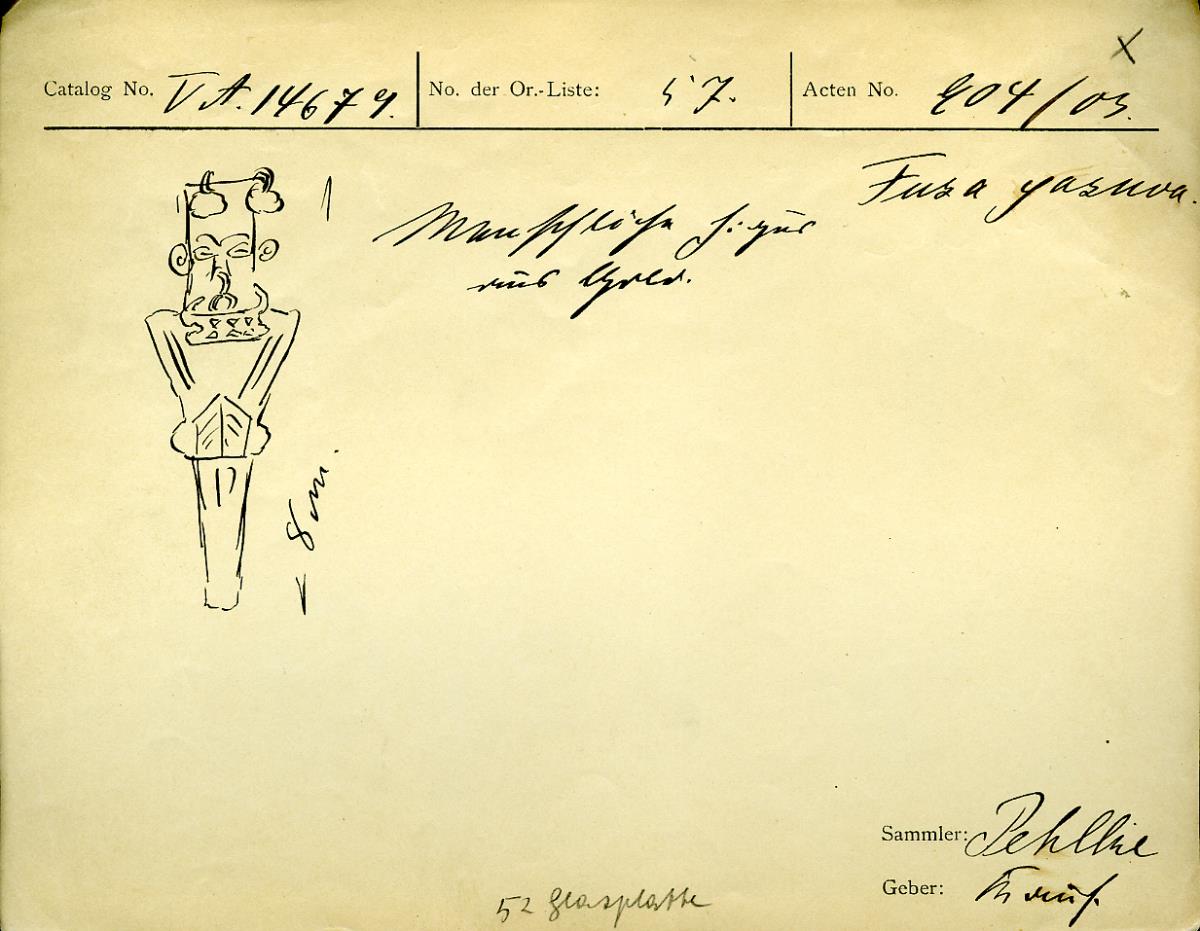 x
Catalog No. V A. 14679.
No. der Or.-Liste: 57.
Acten No. 904/03.
Fusagasuva.
Menschliche Figur
aus Gold.
8 cm.
Sammler:
Geber: Kauf.
52 Glasplatte